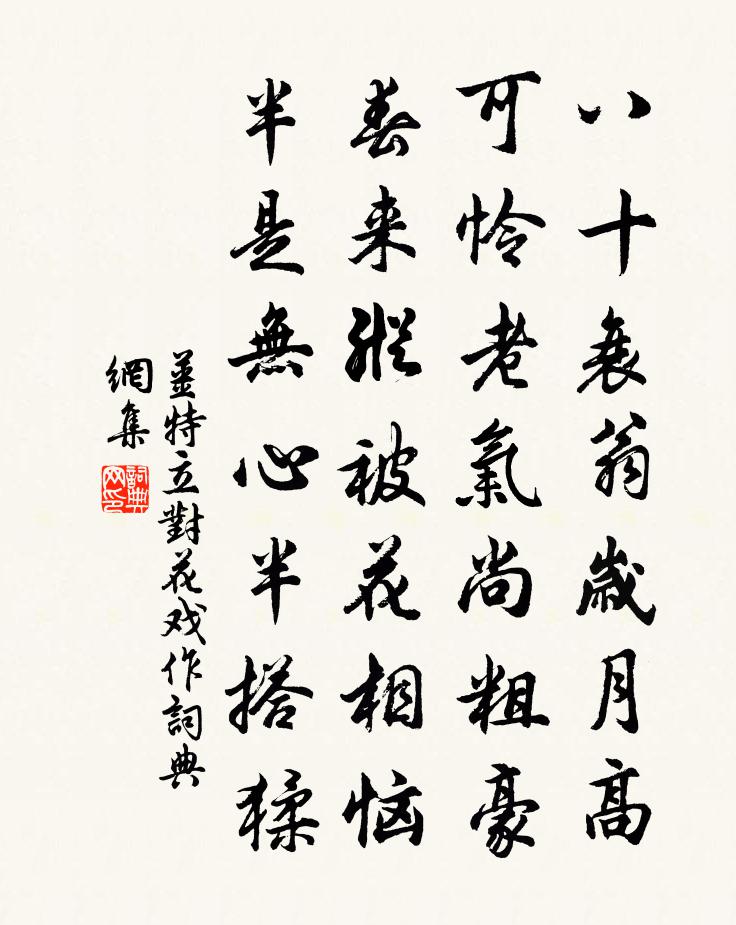 八十衰翁歲月高
可憐老氣尚粗豪
春来縱被花相恼
半是無心半搭猱
姜特立對花戏作詞典
網集
詞典
网印